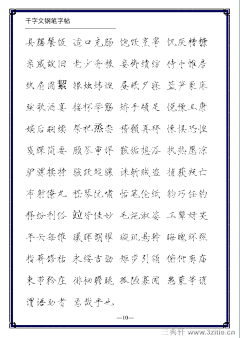 千字文钢笔字帖
具膳餐饭 适口充肠 饱饫烹宰 饥厌糟糠
亲戚故旧 老少异粮 妾御绩纺 侍巾帷房
纨扇圆絜 银烛炜煌 昼眠夕寐 蓝笋象床
弦歌酒宴 接杯举觞 矫手顿足 悦豫且康
嫡后嗣续 祭祀烝尝 稽颡再拜 悚惧恐惶
笺牒简要 顾答审详 骸垢想浴 执热愿凉
驴骡犊特 骇跃超骧 诛斩贼盗 捕获叛亡
布射僚丸 嵇琴阮啸 恬笔伦纸 钧巧任钓
释纷利俗 竝皆佳妙 毛施淑姿 工颦妍笑
年矢每催 曦晖朗曜 璇玑悬斡 晦魄环照
指薪修祜 永绥吉劭 矩步引领 俯仰廊庙
束带矜庄 徘徊瞻眺 孤陋寡闻 愚蒙等诮
谓语助者 焉哉乎也。
—10—
三典轩 www.3zitie.cn